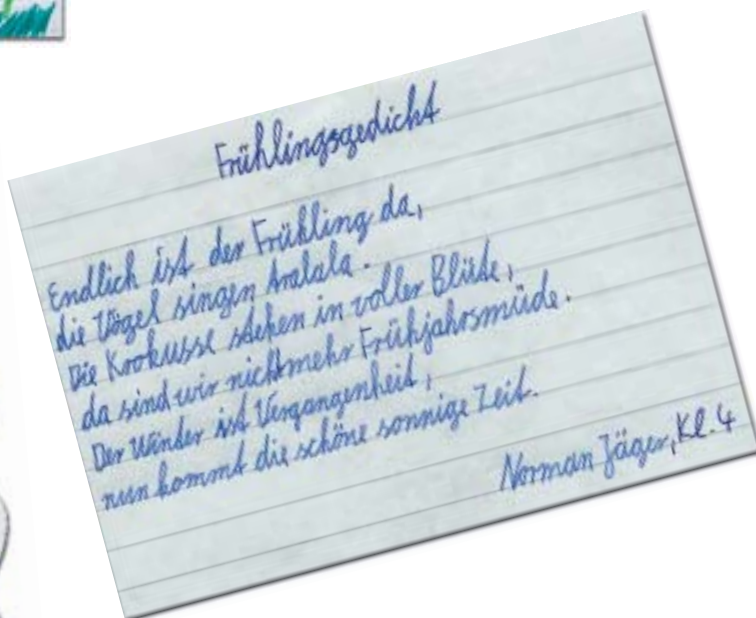 Frühlingsgedicht
Endlich ist der Frühling da,
die Vögel singen tralala.
Die Krokusse stehen in voller Blüte,
da sind wir nicht mehr Frühjahrsmüde.
Der Winter ist Vergangenheit,
nun kommt die schöne sonnige Zeit.
Norman Jäger, Kl. 4